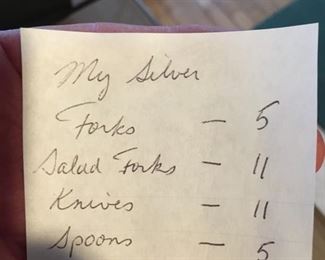 My Silver
Forks – 5
Salad Forks – 11
Knives – 11
Spoons – 5